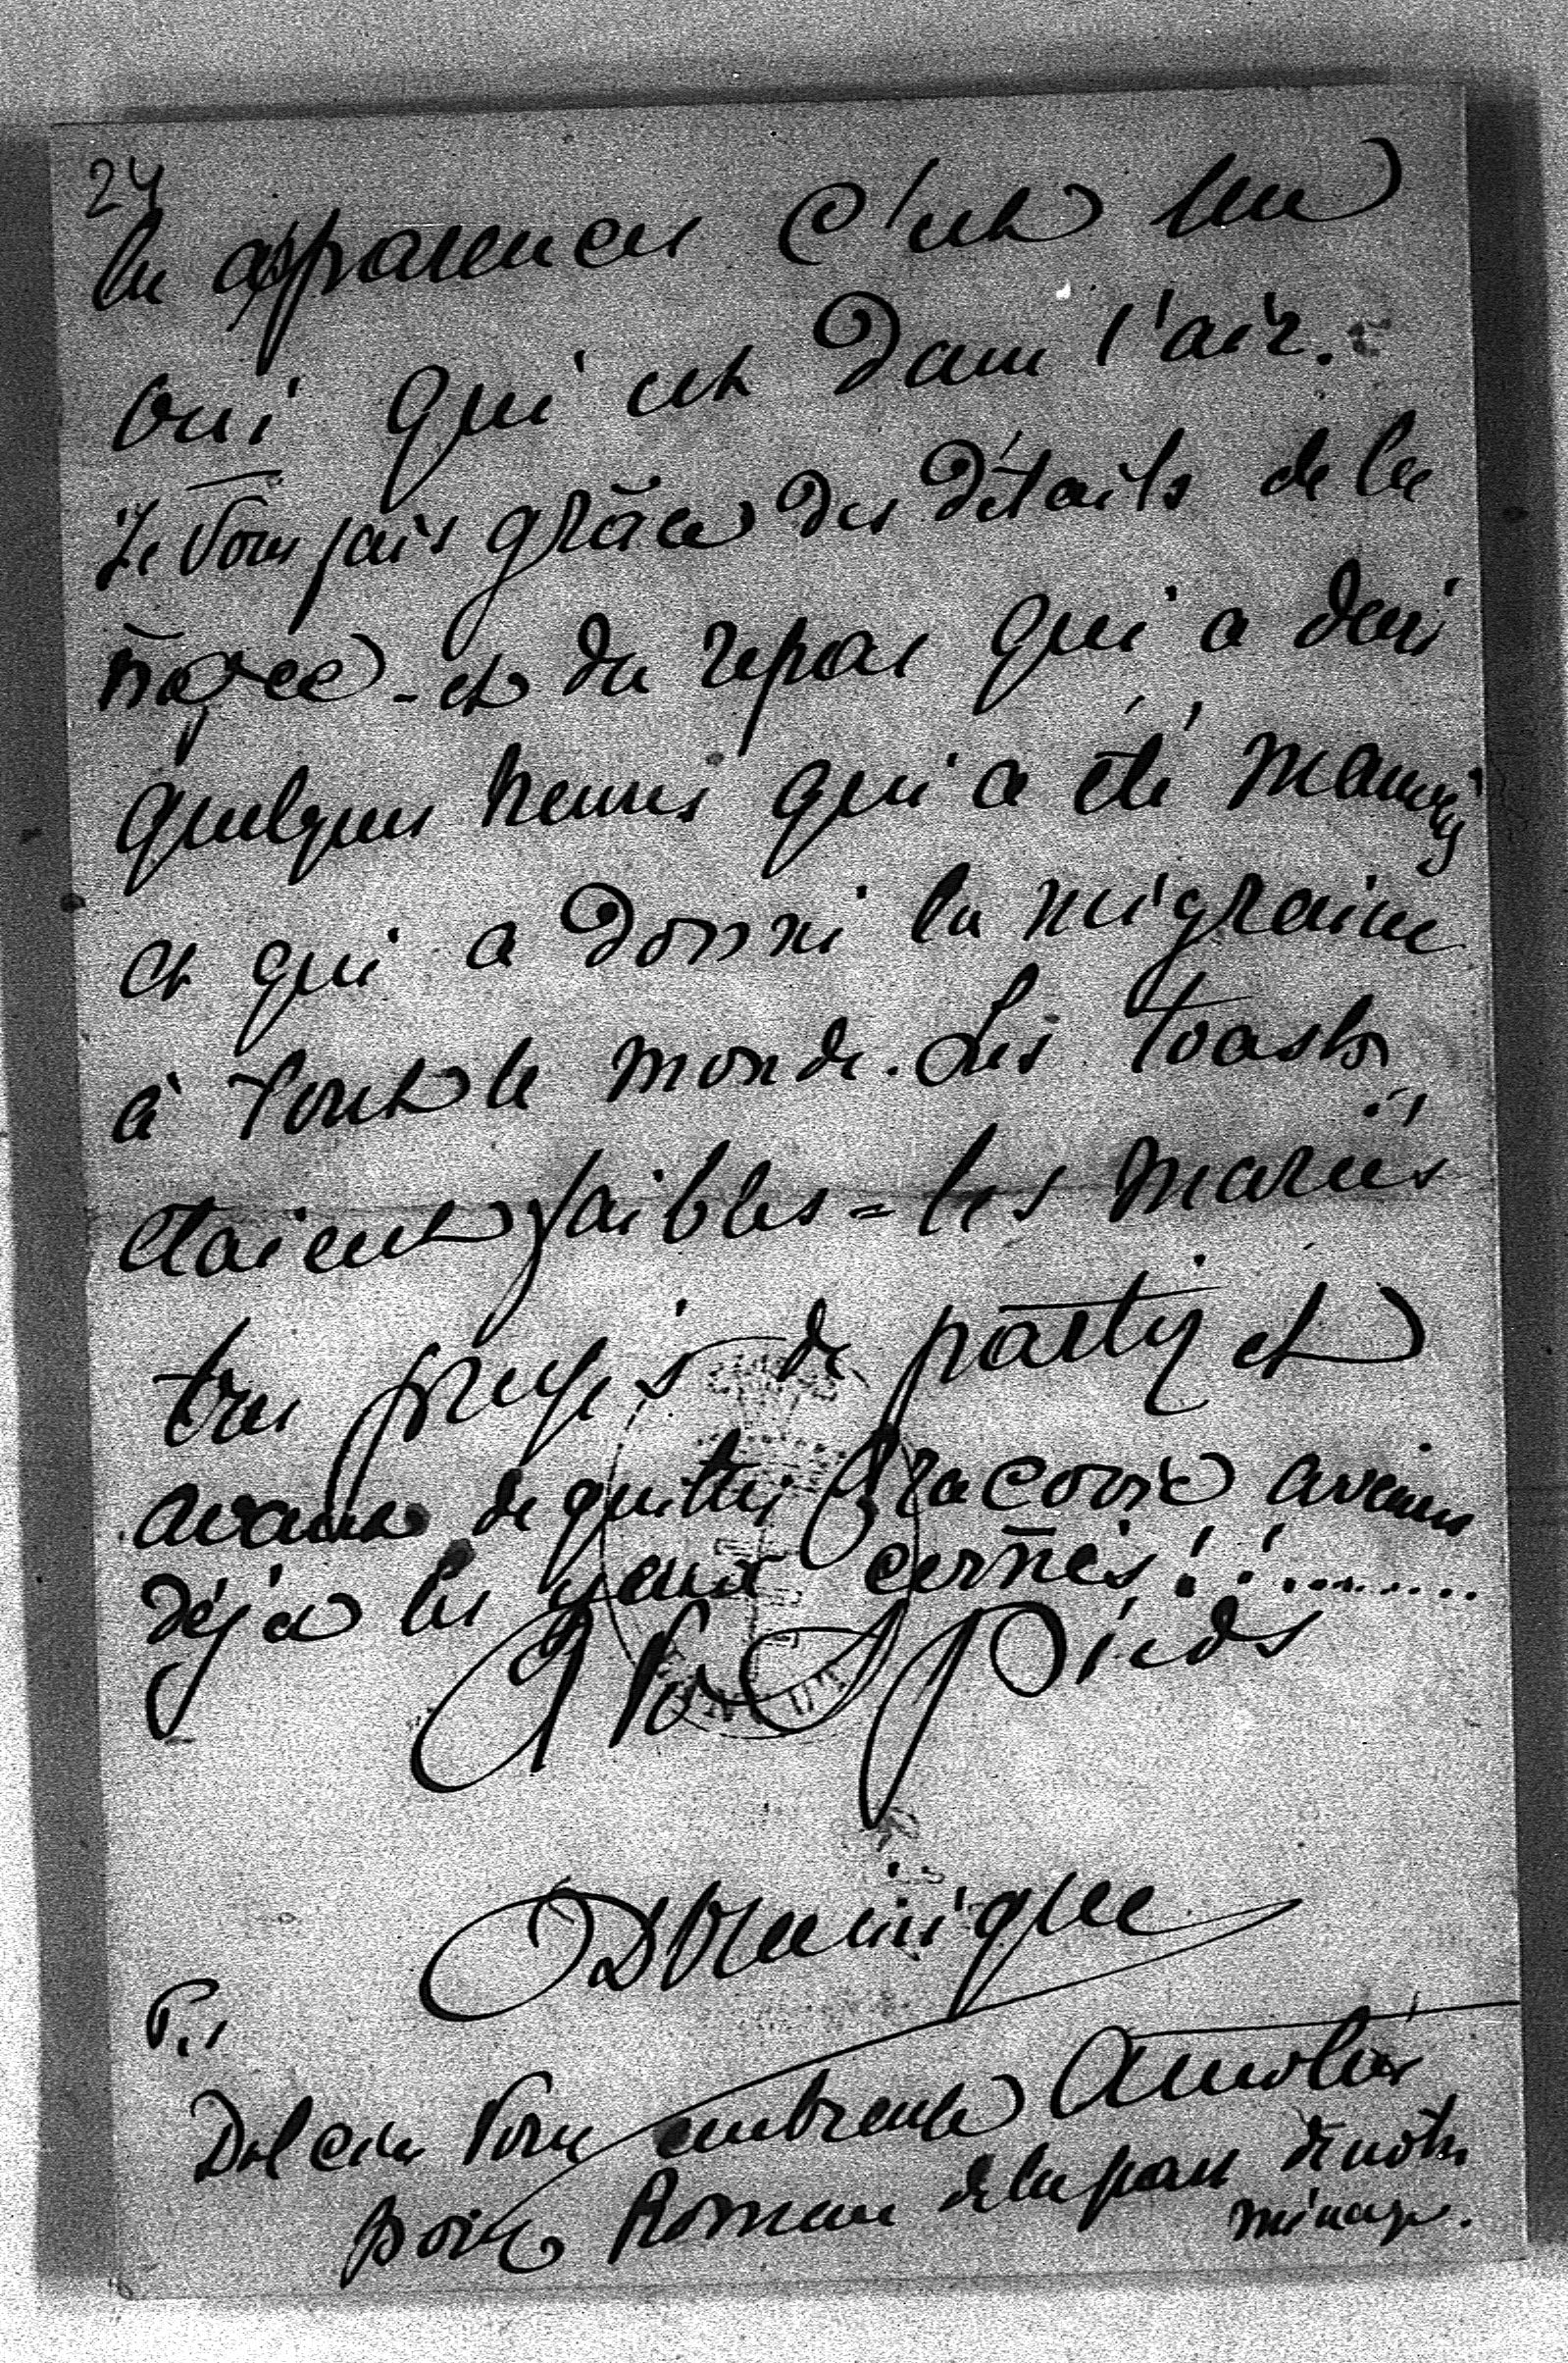 24
les apparences c'est un
oui qui est dans l'air.
Je vous fais grâce des détails de la
noce - et du repas qui a duré
quelques heures qui a été mangé
et qui a donné la migraine
à tout le monde. Les toasts
étaient faibles = les mariés
très pressés de partir et
avant de quitter Cracovie avaient
déjà les yeux cernés!!.........
A Vos pieds
Dominique
P.S
Dulcia vous embrasse
pour Roman de la part de notre
ménage.